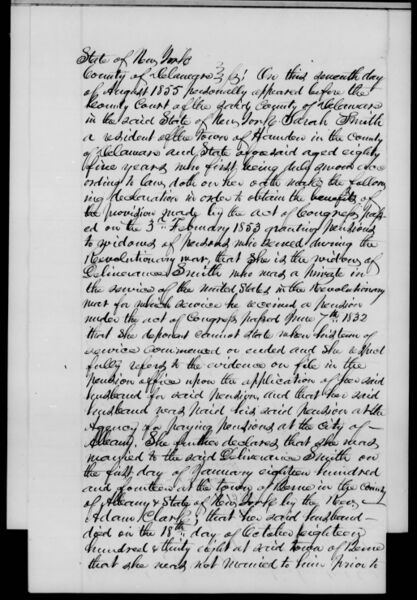 State of New York
County of Delaware } ss: On this seventh day
of August 1855 personally appeared before the
County Court of the said County of Delaware
in the said State of New York Sarah Smith
a resident of the town of Hamden in the county
of Delaware and State aforesaid aged eighty
five years who first being duly sworn acc
ording to law, doth on her oath make the follow
ing declaration in order to obtain the benefits of
the provision made by the act of Congress pass
ed on the 3rd February 1853 granting pensions
to widows of persons who served during the
Revolutionary war, that she is the widow of
Deliverance Smith who was a private in
the service of the United States in the Revolutionary
war for which service he received a pension
under the act of Congress passed June 7th 1832
that she deponent cannot state when his term of
service commenced or ended and she respect
fully refers to the evidence on file in the
pension office upon the application of her said
husband for said pension, and that her said
husband was paid his said pension at the
Agency for paying pensions at the City of
Albany. She further declares that she was
married to the said Deliverance Smith on
the first day of January eighteen hundred
and fourteen at the town of Berne in the county
of Albany & State of New York by the Rev.
Adam Clark, that her said husband
died on the 18th day of October eighteen
hundred & thirty eight at said town of Berne
that she was not married to him prior to